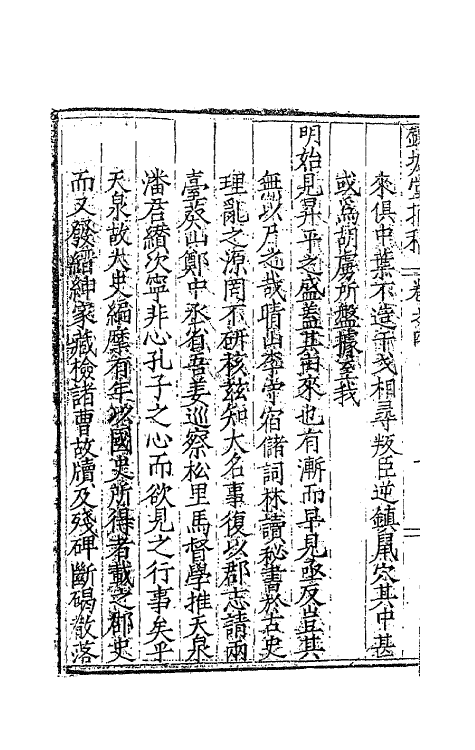 堂摘稿 卷之四
來俱中葉不造干戈相尋叛臣逆鎮鼠穴其中甚
或為胡虜所盤據至我
明始見昇平之盛蓋其由來也有漸而早見亟反豈其
無以乃迄哉晴山李守宿儲詞林讀秘書於古史
理亂之源罔不研核茲知大名事復以郡志請兩
臺葵山鄭中丞省吾姜巡察松里馬督學推天泉
潘君纘次寧非心孔子之心而欲見之行事矣乎
天泉故太史編摩有年以國史所得者載之郡史
而又發縉紳家藏檢諸曹故牘及殘碑斷碣散落